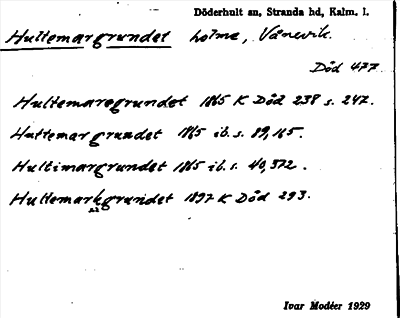 Döderhult sn, Stranda hd, Kalm. l.
Hultemargrundet holme, Vånevik.
Död 477
Hultemaregrundet 1865 K Död 238 s. 247.
Huttemargrundet 1865 ib. s. 89, 165.
Hultimargrundet 1865 ib. s. 40, 372.
Hultemarkgrundet 1897 K Död 293.
Ivar Modéer 1929